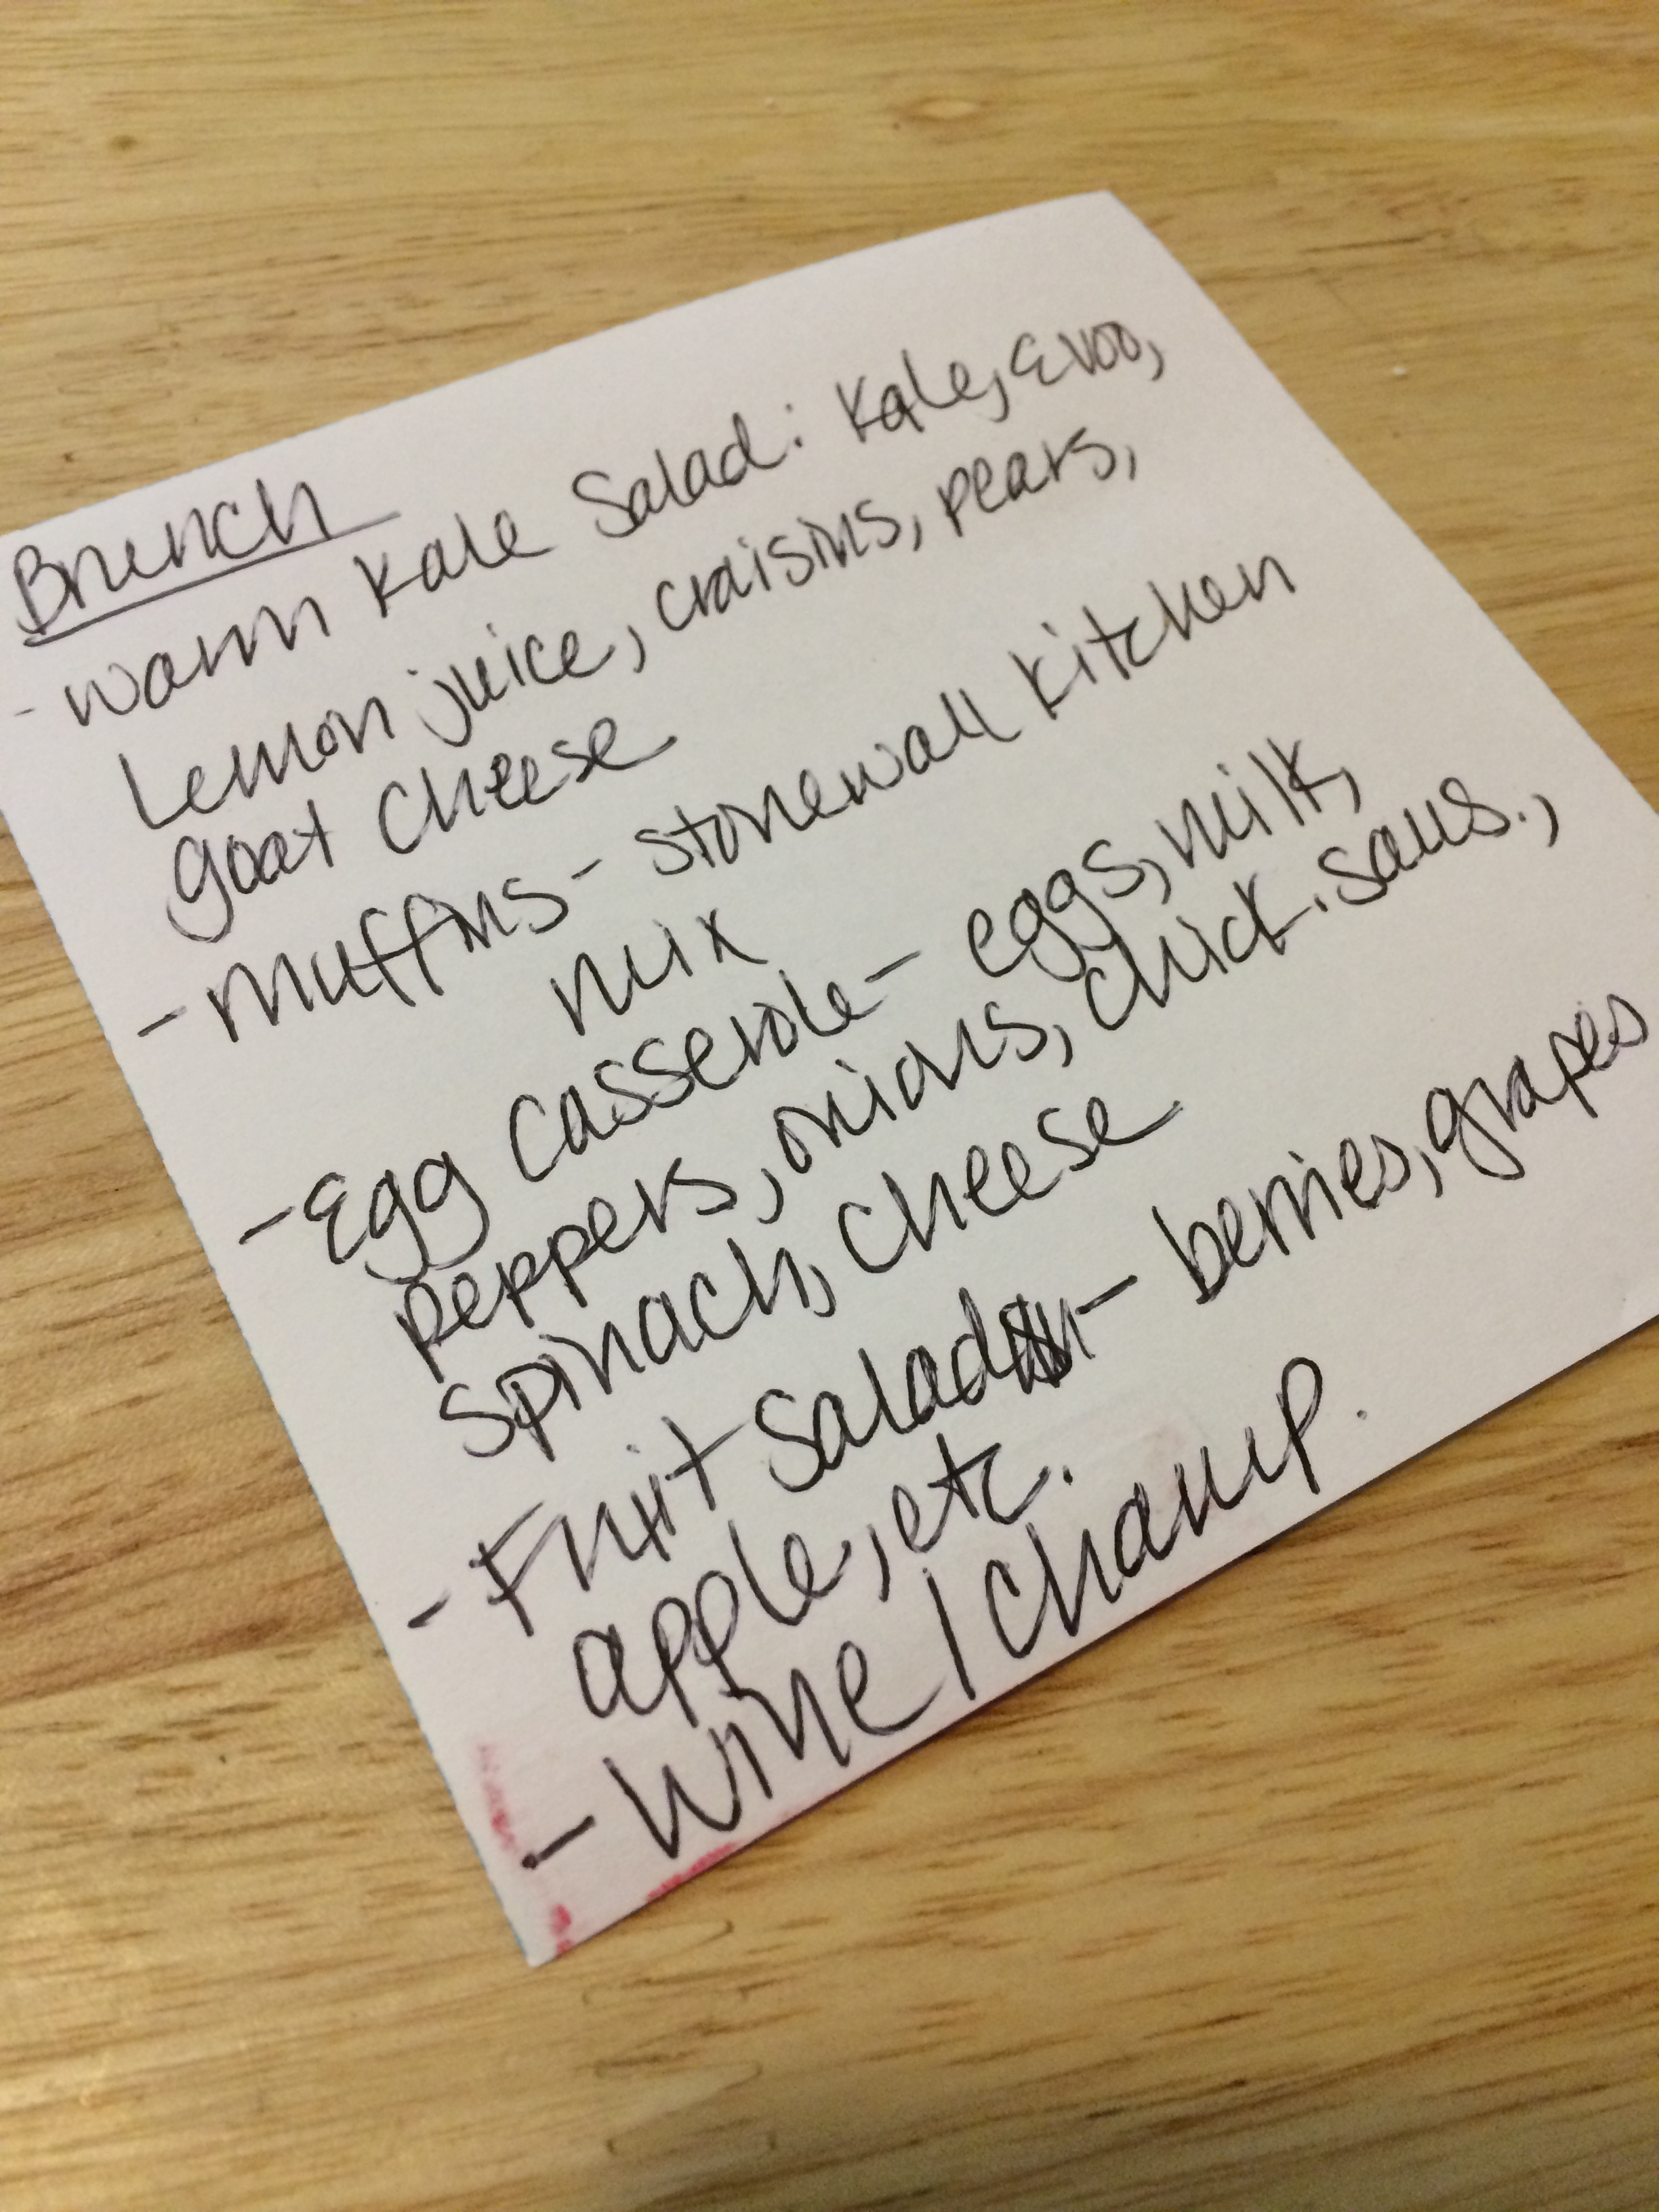 Brunch
- Warm Kale Salad: Kale, EVOO,
Lemon juice, craisins, pears,
goat cheese
- Muffins - Stonewall Kitchen
mix
- Egg Casserole - eggs, milk,
peppers, onions, chick. saus.,
spinach, cheese
- Fruit Salad - berries, grapes
apple, etc.
- Wine / Champ.